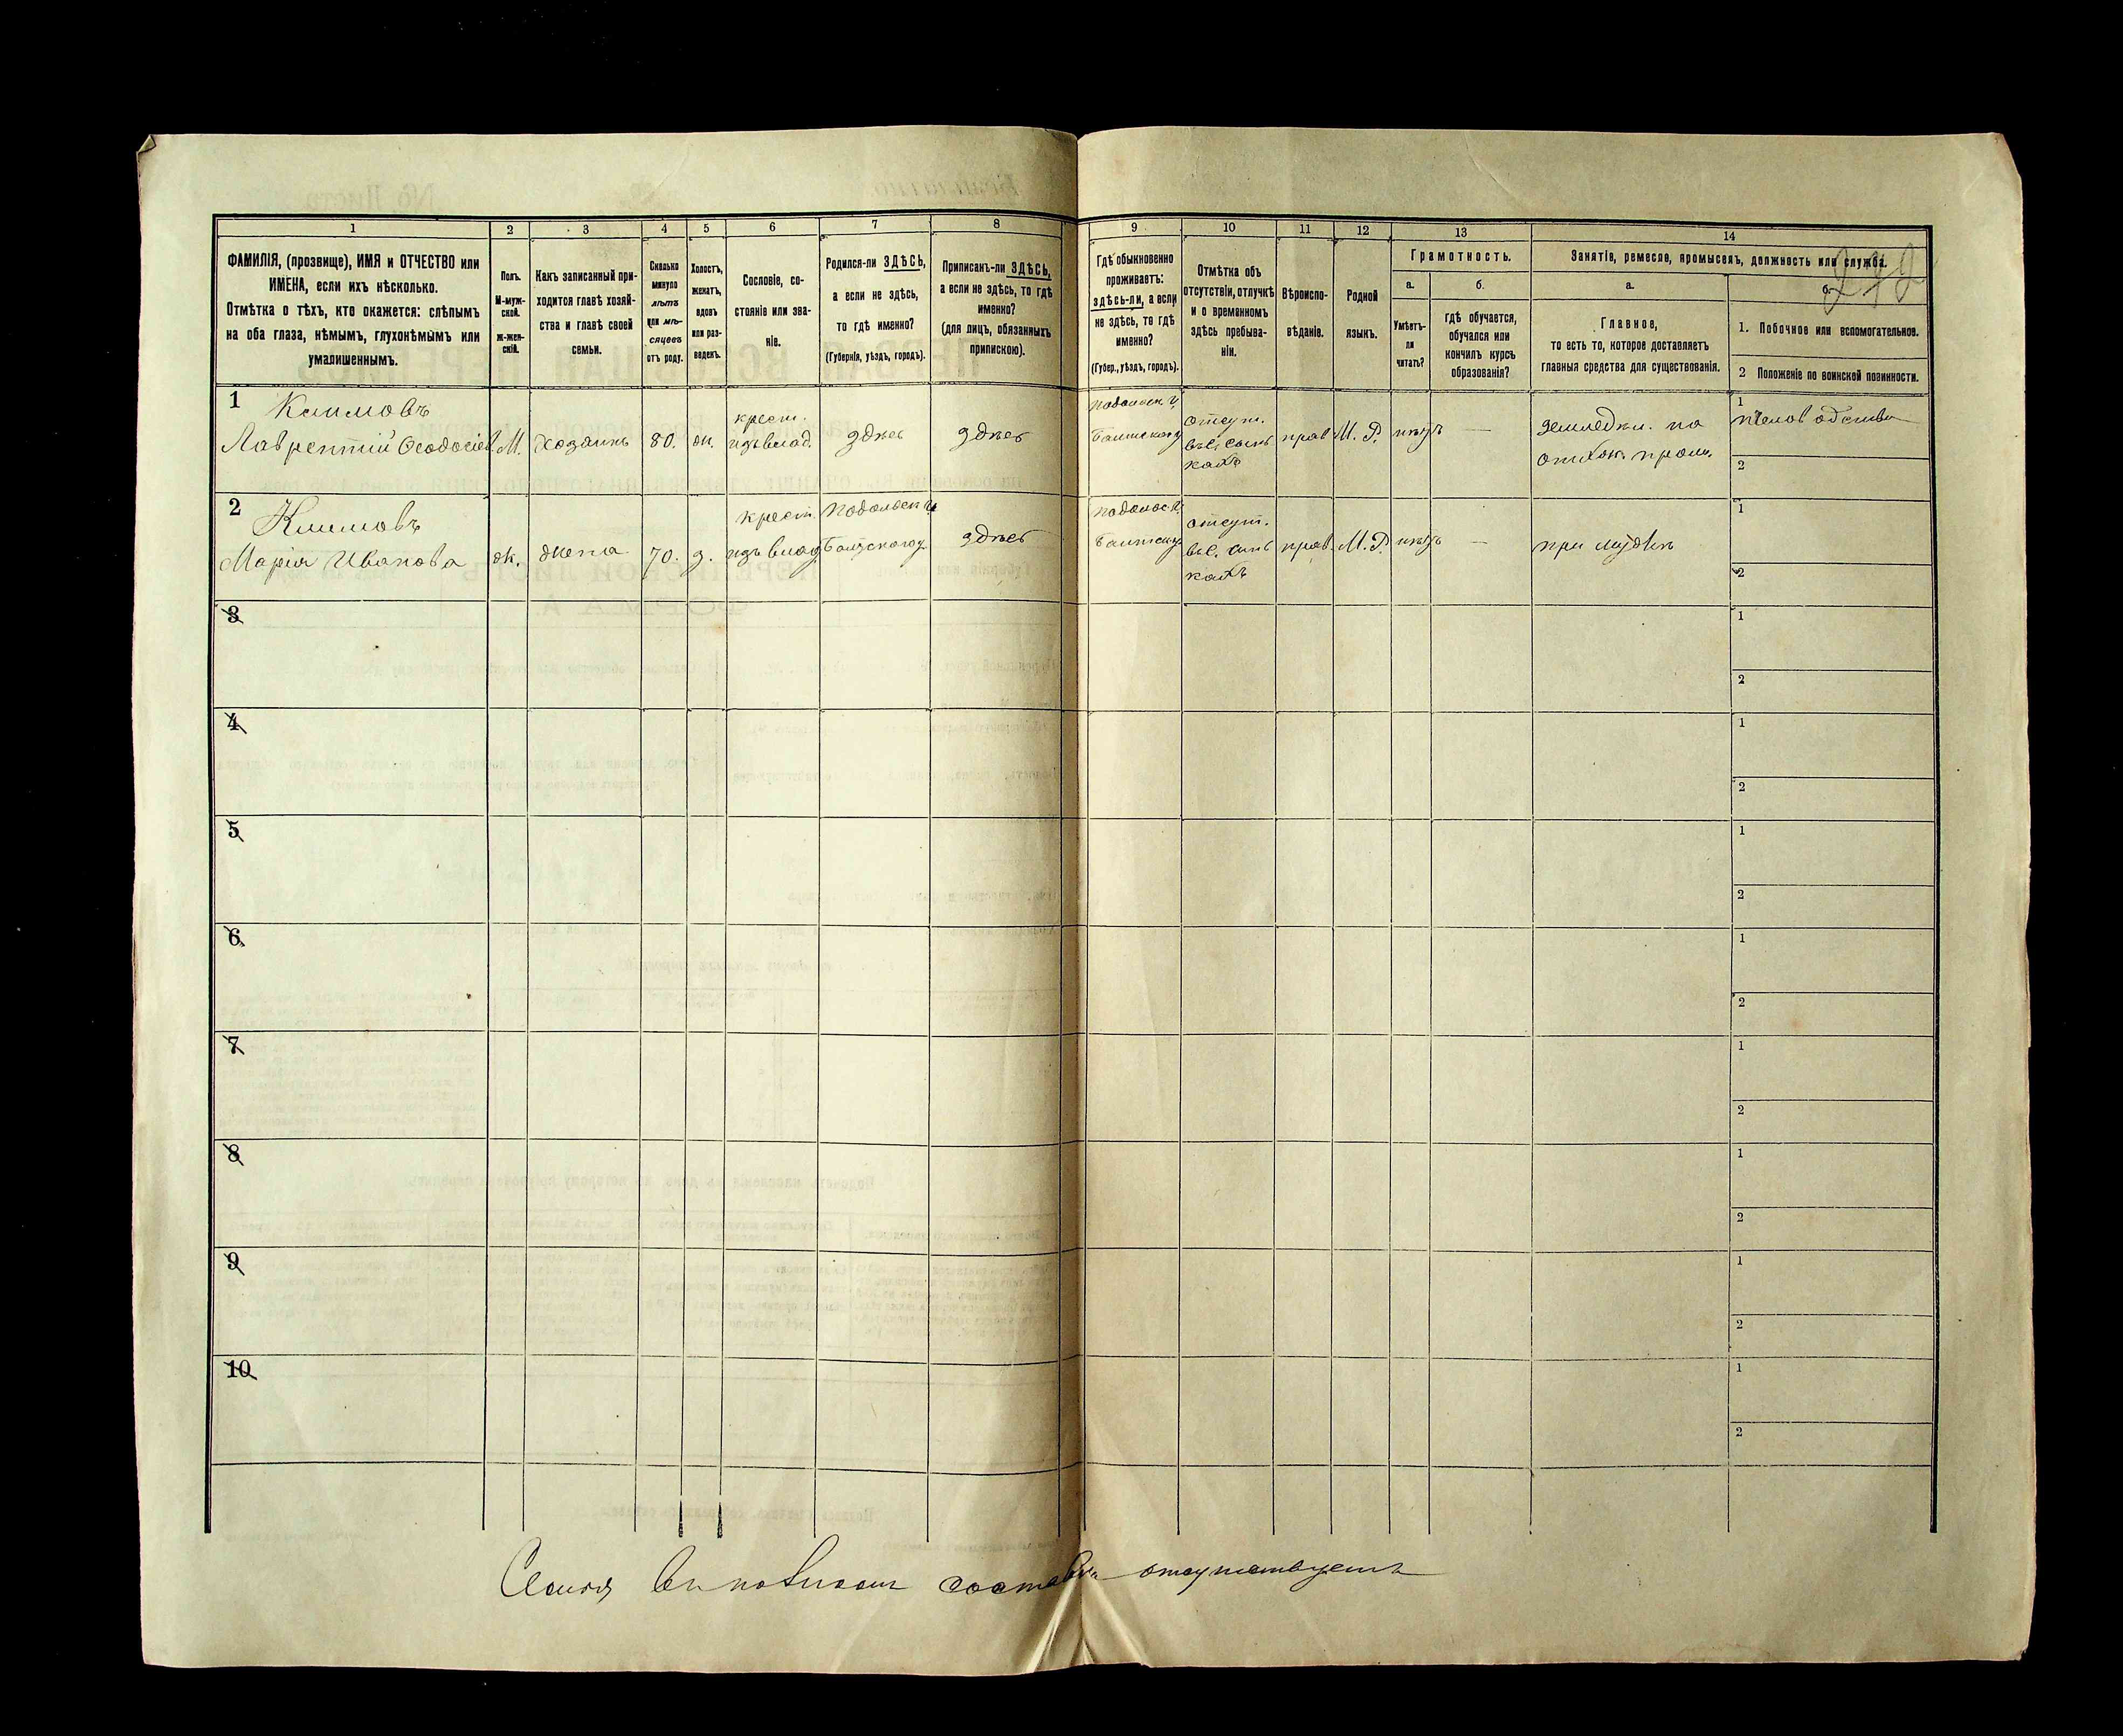 272
1 2 3 4 5 6 7 8 9 10 11 12 13 14
ФАМИЛІЯ, (прозвище), ИМЯ и ОТЧЕСТВО или
ИМЕНА, если ихъ нѣсколько.
Отмѣтка о тѣхъ, кто окажется: слѣпымъ
на оба глаза, нѣмымъ, глухонѣмымъ или
умалишеннымъ.
Полъ.
М-муж-
ской.
ж-жен-
скій.
Какъ записанный при-
ходится главѣ хозяй-
ства и главѣ своей
семьи.
Сколько
минуло
лѣтъ
или мѣ-
сяцевъ
отъ роду.
Холостъ,
женатъ,
вдовъ
или раз-
веденъ.
Сословіе, со-
стояніе или зва-
ніе.
Родился-ли ЗДѢСЬ,
а если не здѣсь,
то гдѣ именно?
(Губернія, уѣздъ, городъ).
Приписанъ-ли ЗДѢСЬ,
а если не здѣсь, то гдѣ
именно?
(для лицъ, обязанныхъ
припискою).
Гдѣ обыкновенно
проживаетъ:
здѣсь-ли, а если
не здѣсь, то гдѣ
именно?
(Губер., уѣздъ, городъ).
Отмѣтка объ
отсутствіи, отлучкѣ
и о временномъ
здѣсь пребыва-
ніи.
Вѣроиспо-
вѣданіе.
Родной
языкъ.
Грамотность.
а.
Умѣетъ-
ли
читать?
б.
гдѣ обучается,
обучался или
кончилъ курсъ
образованія?
Занятіе, ремесло, промыселъ, должность или служба.
а.
Главное,
то есть то, которое доставляетъ
главныя средства для существованія.
б.
1. Побочное или вспомогательное.
2 Положеніе по воинской повинности.
1
Климовъ
Лаврентій Ѳеодосіев.
М.
хозяинъ
80.
ж.
крест.
изъ влад.
здѣсь
здѣсь
Подольск. г.
Балтскаго у
отсут.
въ
прав
М. Р.
нѣтъ
—
земледѣл. на
1
пчеловодство
2
2
Климовъ
Марія Иванова
ж.
жена
70.
з.
крест.
изъ влад
Подольск. г.
Балтскаго у.
здѣсь
Подольс. г.
Балтск у
отсут.
въ
прав.
М. Р.
нѣтъ
—
при мужѣ
1
2
3
1
2
4
1
2
5
1
2
6
1
2
7
1
2
8
1
2
9
1
2
10
1
2
Семья въ полном составѣ отсутствуетъ